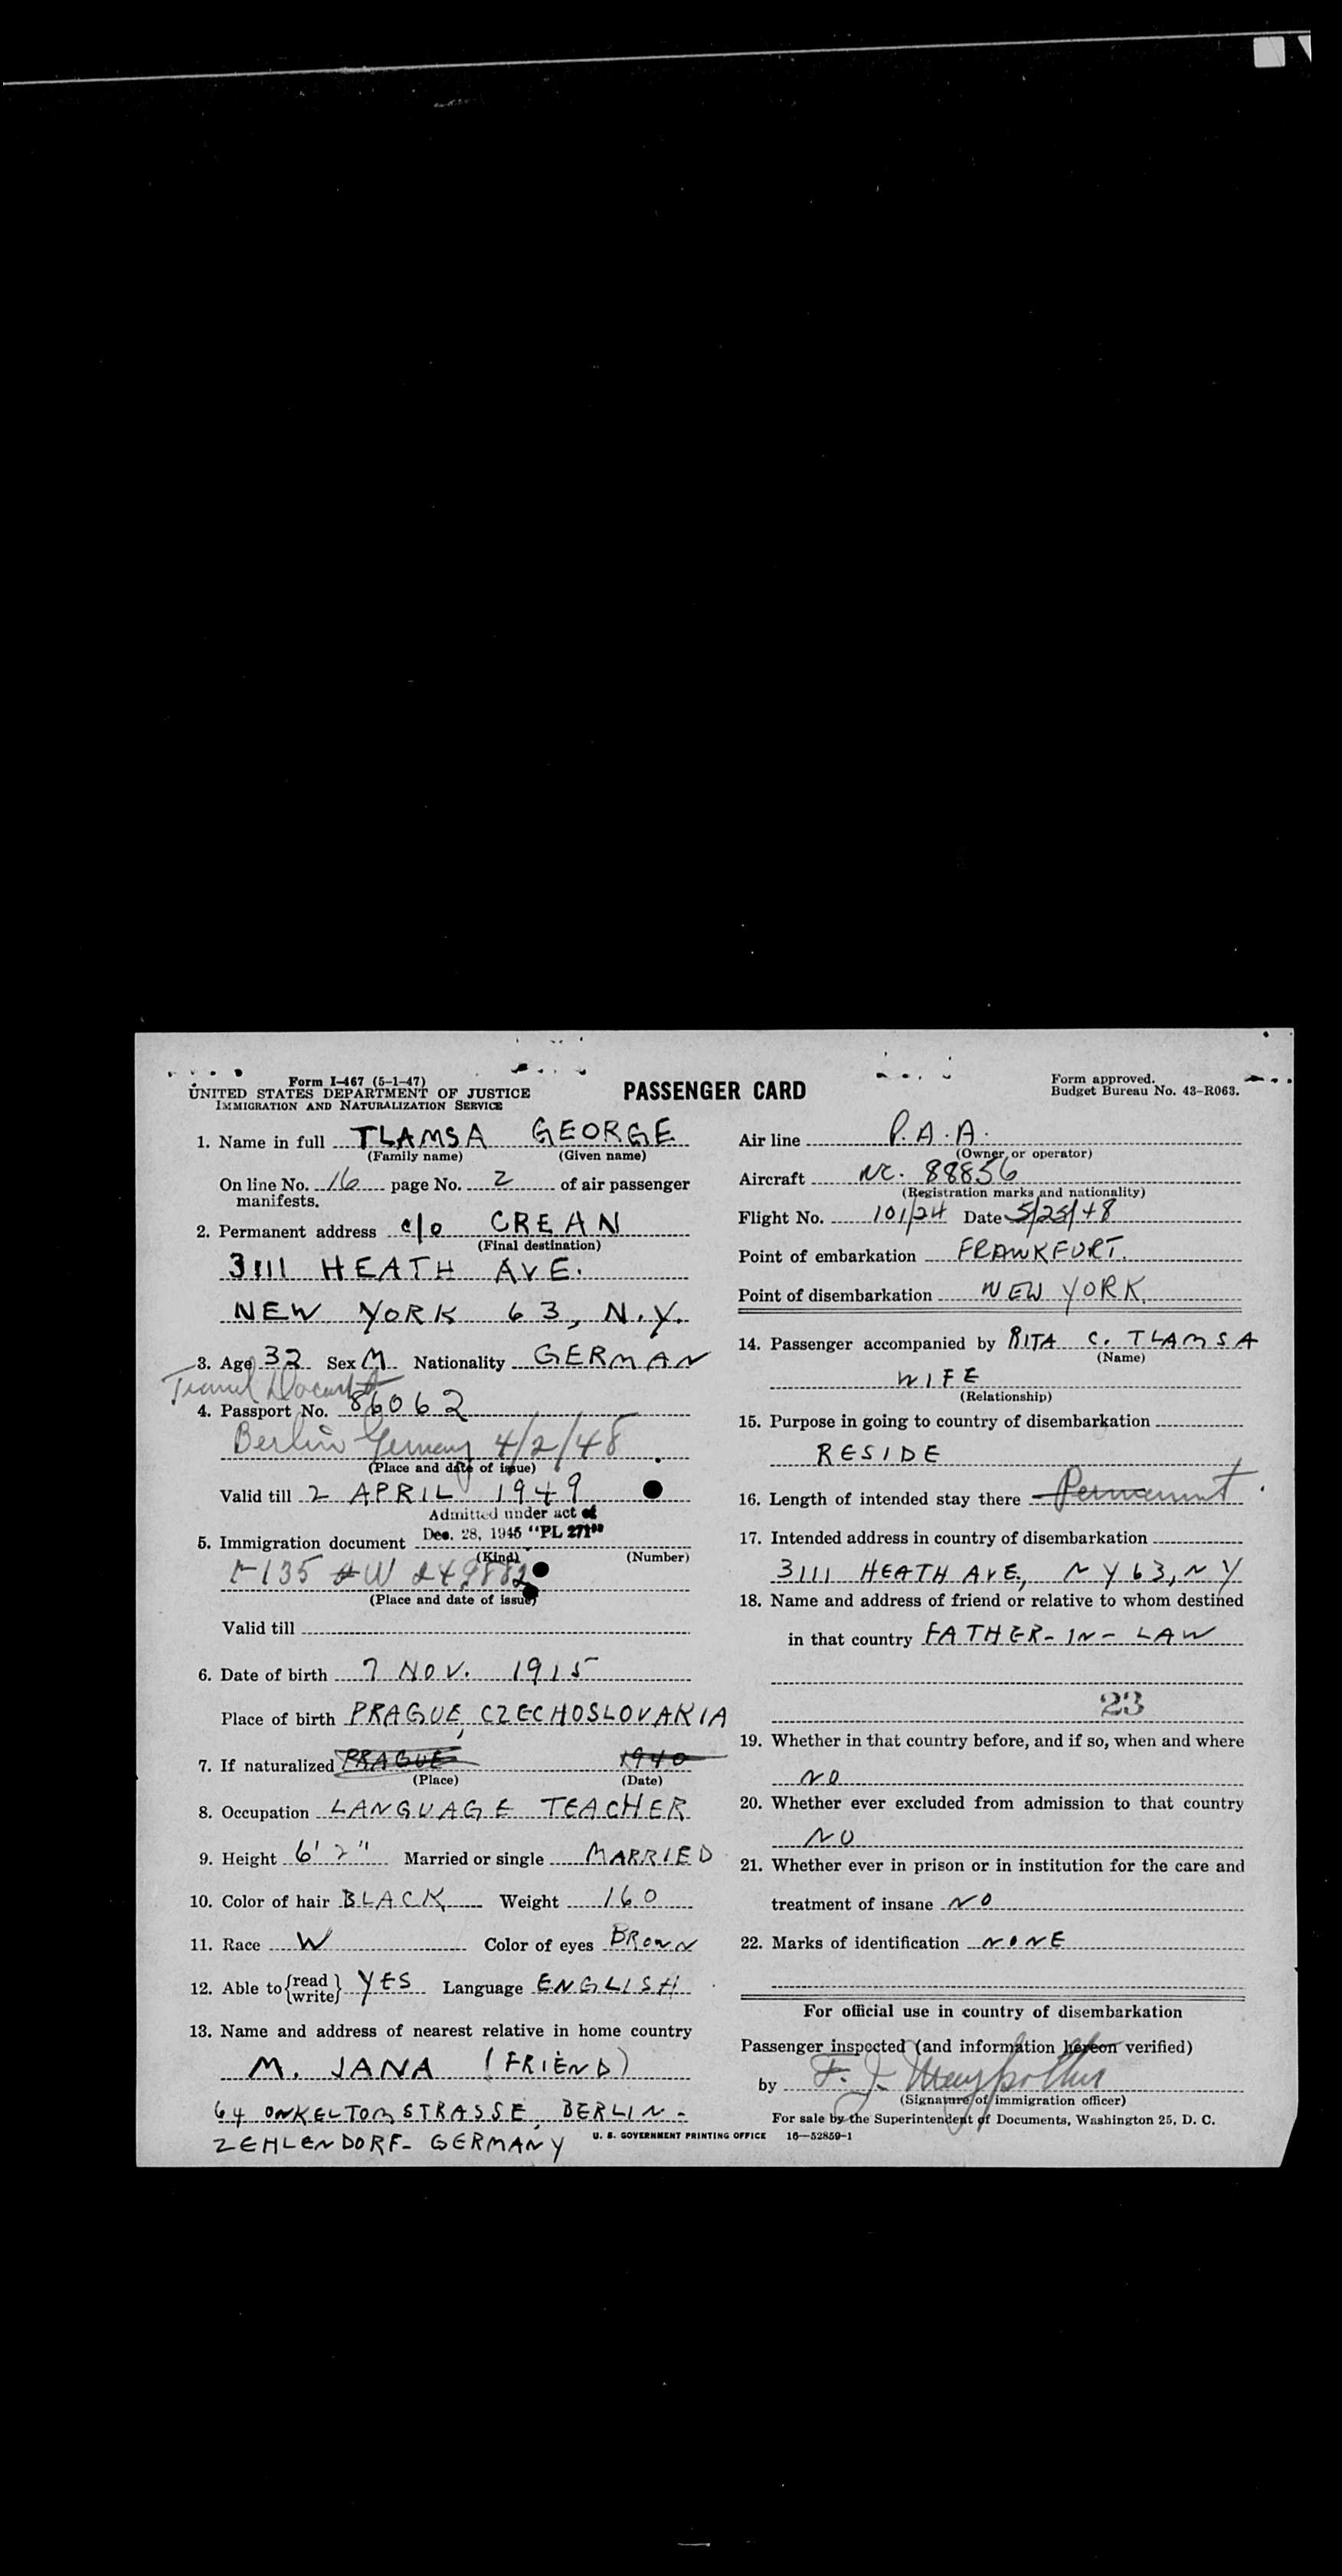 Form I-467 (5-1-47)
UNITED STATES DEPARTMENT OF JUSTICE
IMMIGRATION AND NATURALIZATION SERVICE
PASSENGER CARD
Form approved.
Budget Bureau No. 43-R063.
1. Name in full TLAMSA GEORGE
(Family name) (Given name)
On line No. 16 page No. 2 of air passenger
manifests.
2. Permanent address c/o CREAN
(Final destination)
3111 HEATH AVE.
NEW YORK 63, N.Y.
3. Age 32 Sex M Nationality GERMAN
Travel Document
4. Passport No. 86062
Berlin Germany 4/2/48
(Place and date of issue)
Valid till 2 APRIL 1949
Admitted under act of
Dec. 28, 1945 "PL 271"
5. Immigration document
(Kind) (Number)
I-135 #W 249882
(Place and date of issue)
Valid till
6. Date of birth 7 NOV. 1915
Place of birth PRAGUE, CZECHOSLOVAKIA
7. If naturalized PRAGUE 1940
(Place) (Date)
8. Occupation LANGUAGE TEACHER
9. Height 6' 2" Married or single MARRIED
10. Color of hair BLACK Weight 160
11. Race W Color of eyes BROWN
12. Able to {read write} YES Language ENGLISH
13. Name and address of nearest relative in home country
M. JANA (FRIEND)
64 ONKELTOMSTRASSE, BERLIN-
ZEHLENDORF- GERMANY
Air line P.A.A.
(Owner or operator)
Aircraft NC. 88856
(Registration marks and nationality)
Flight No. 101/24 Date 5/25/48
Point of embarkation FRANKFURT.
Point of disembarkation NEW YORK.
14. Passenger accompanied by RITA C. TLAMSA
(Name)
WIFE
(Relationship)
15. Purpose in going to country of disembarkation
RESIDE
16. Length of intended stay there Permanent
17. Intended address in country of disembarkation
3111 HEATH AVE., NY 63, NY
18. Name and address of friend or relative to whom destined
in that country FATHER-IN-LAW
23
19. Whether in that country before, and if so, when and where
NO
20. Whether ever excluded from admission to that country
NO
21. Whether ever in prison or in institution for the care and
treatment of insane NO
22. Marks of identification NONE
For official use in country of disembarkation
Passenger inspected (and information hereon verified)
by F. J.
(Signature of immigration officer)
For sale by the Superintendent of Documents, Washington 25, D. C.
U. S. GOVERNMENT PRINTING OFFICE 16—52859-1